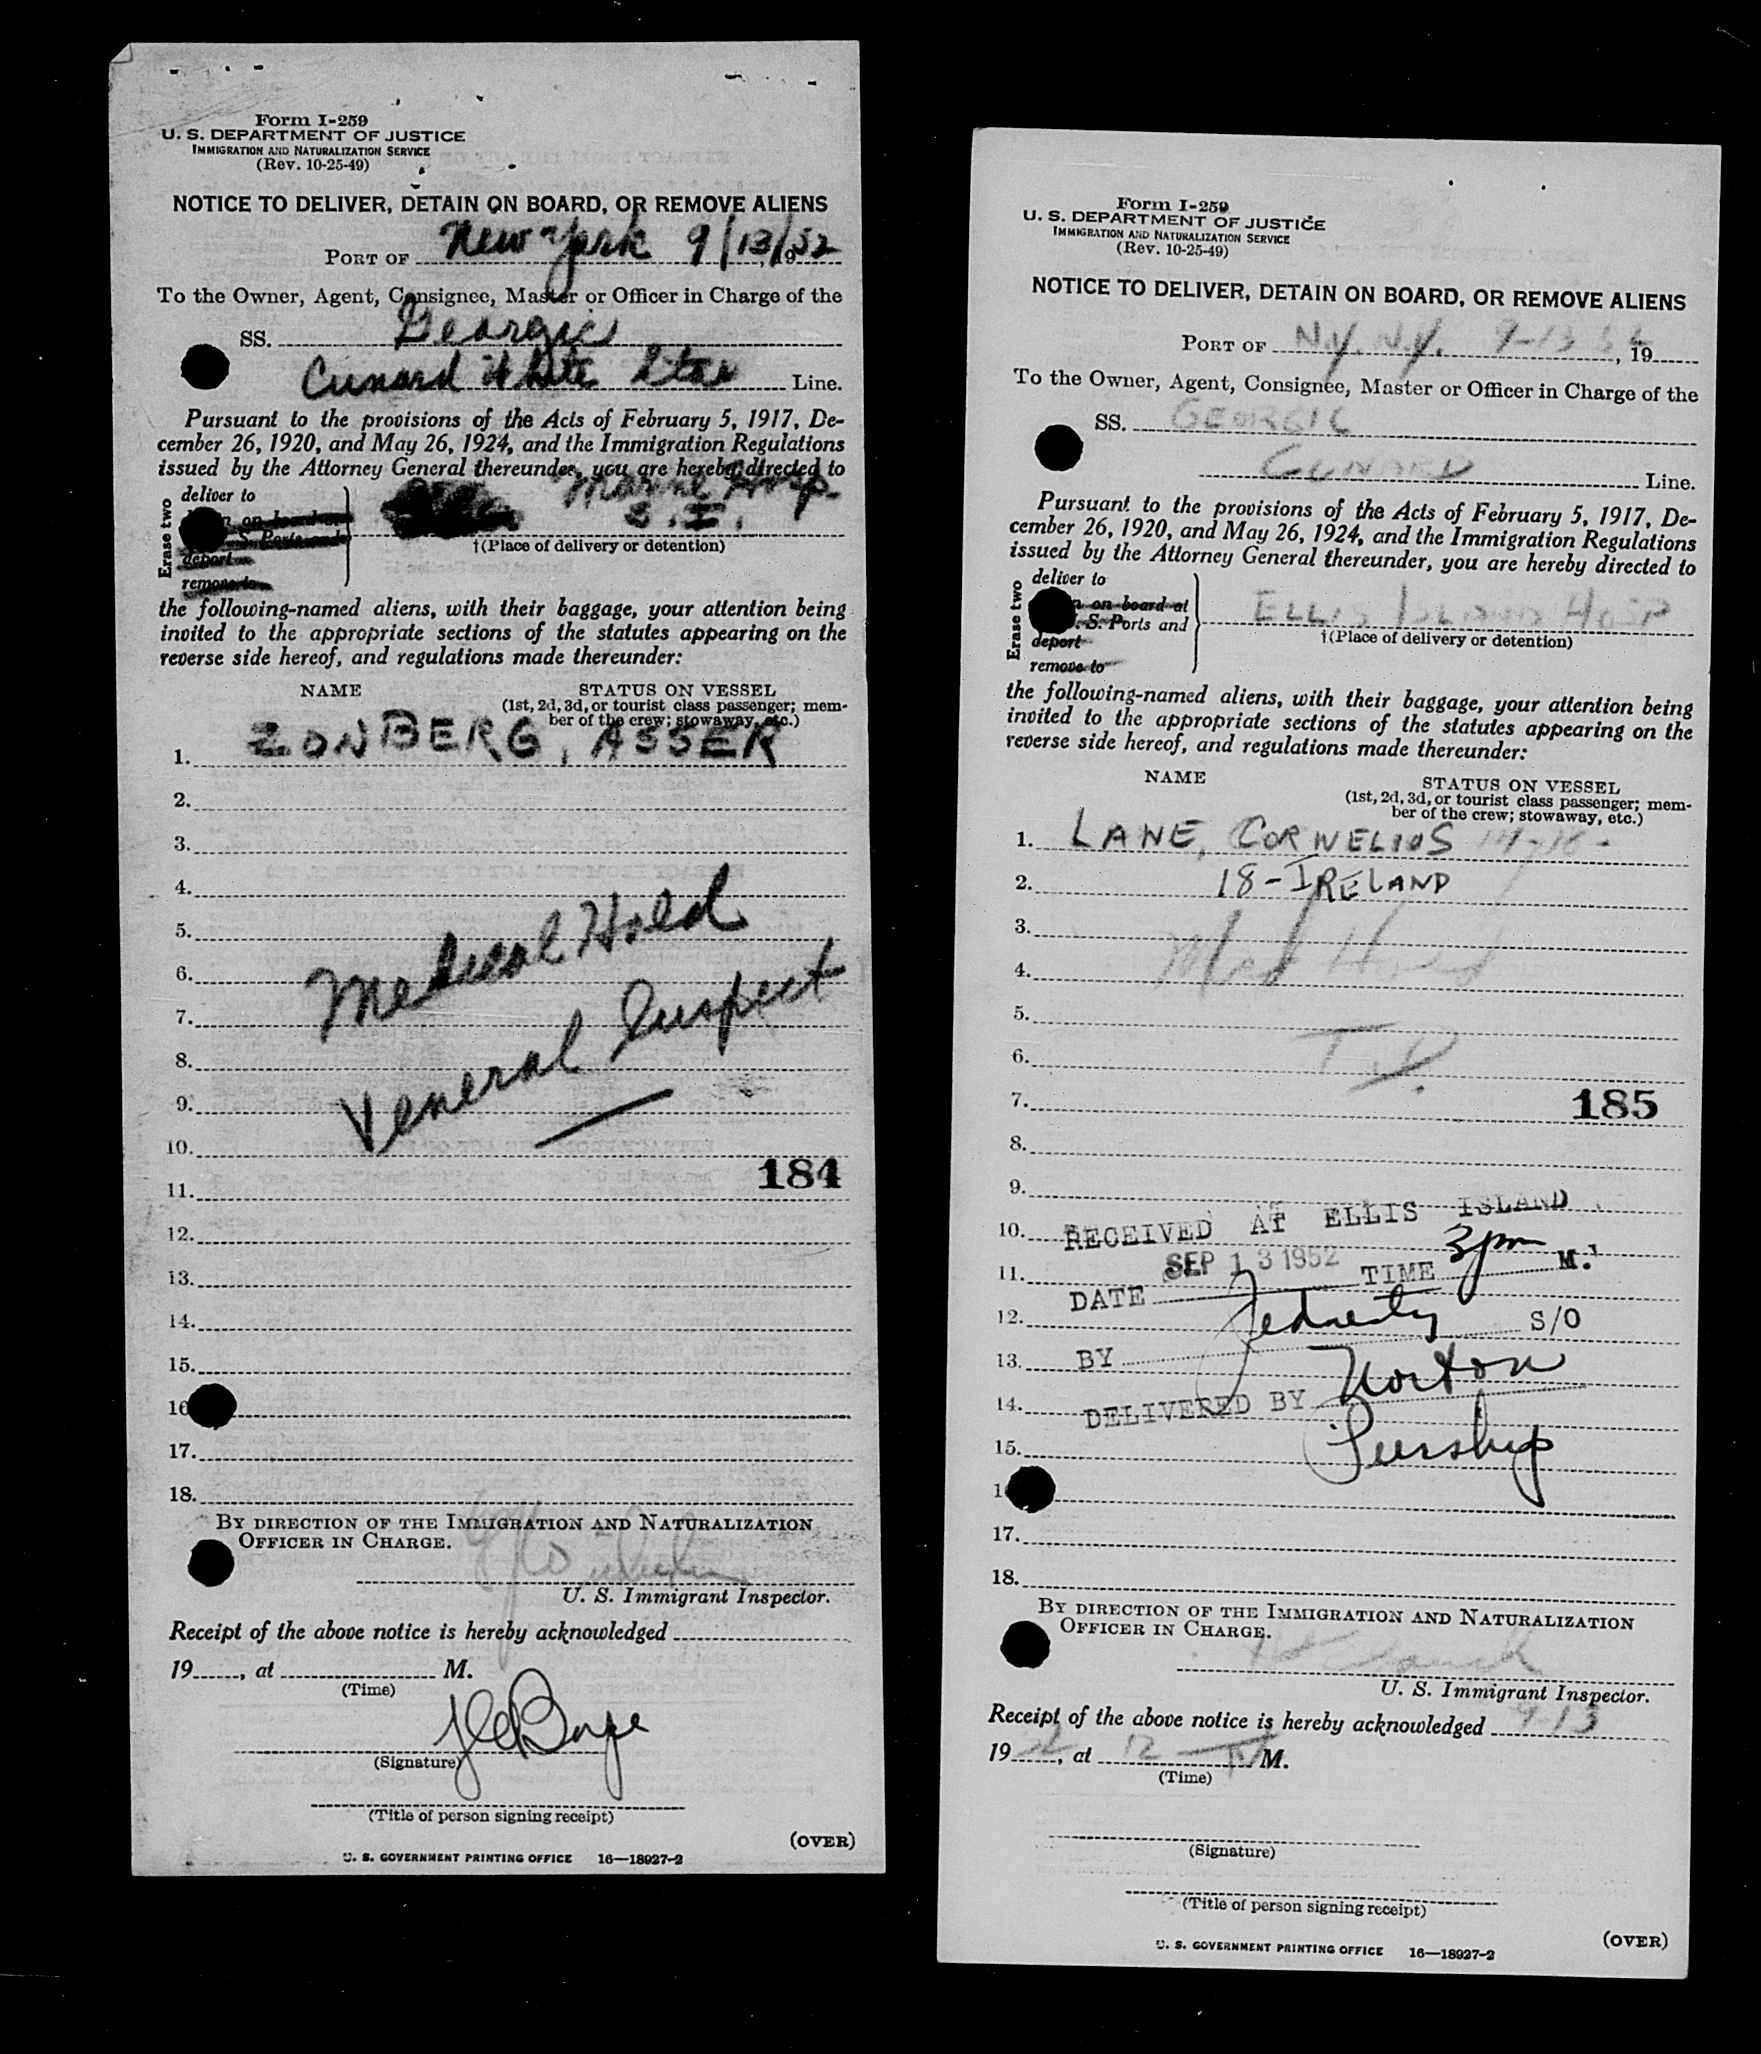 Form I-259
U. S. DEPARTMENT OF JUSTICE
IMMIGRATION AND NATURALIZATION SERVICE
(Rev. 10-25-49)
NOTICE TO DELIVER, DETAIN ON BOARD, OR REMOVE ALIENS
PORT OF New York 9/13/1952
To the Owner, Agent, Consignee, Master or Officer in Charge of the
SS. Georgic
Cunard White Star Line.
Pursuant to the provisions of the Acts of February 5, 1917, De-
cember 26, 1920, and May 26, 1924, and the Immigration Regulations
issued by the Attorney General thereunder, you are hereby directed to
Erase two
deliver to
n on board at
S. Ports and
deport
remove to
Marine Hosp.
S. I.
†(Place of delivery or detention)
the following-named aliens, with their baggage, your attention being
invited to the appropriate sections of the statutes appearing on the
reverse side hereof, and regulations made thereunder:
NAME STATUS ON VESSEL
(1st, 2d, 3d, or tourist class passenger; mem-
ber of the crew; stowaway, etc.)
1. ZONBERG, ASSER
2.
3.
4.
5.
6.
7.
8.
9.
10.
Medical Hold
Veneral Suspect
184
11.
12.
13.
14.
15.
16
17.
18.
BY DIRECTION OF THE IMMIGRATION AND NATURALIZATION
OFFICER IN CHARGE.
U. S. Immigrant Inspector.
Receipt of the above notice is hereby acknowledged
19 , at M.
(Time)
(Signature)
(Title of person signing receipt)
(OVER)
U. S. GOVERNMENT PRINTING OFFICE 16—18927-2
Form I-259
U. S. DEPARTMENT OF JUSTICE
IMMIGRATION AND NATURALIZATION SERVICE
(Rev. 10-25-49)
NOTICE TO DELIVER, DETAIN ON BOARD, OR REMOVE ALIENS
PORT OF N.Y. N.Y. 9-13 52, 19
To the Owner, Agent, Consignee, Master or Officer in Charge of the
SS. GEORGIC
CUNARD Line.
Pursuant to the provisions of the Acts of February 5, 1917, De-
cember 26, 1920, and May 26, 1924, and the Immigration Regulations
issued by the Attorney General thereunder, you are hereby directed to
Erase two
deliver to
n on board at
. S. Ports and
deport
remove to
ELLIS ISLAND HOSP
†(Place of delivery or detention)
the following-named aliens, with their baggage, your attention being
invited to the appropriate sections of the statutes appearing on the
reverse side hereof, and regulations made thereunder:
NAME STATUS ON VESSEL
(1st, 2d, 3d, or tourist class passenger; mem-
ber of the crew; stowaway, etc.)
1. LANE, CORNELIUS 14-16-
2. 18-IRELAND
3.
4. Med Hold
5.
6. T.D.
7. 185
8.
9.
10. RECEIVED AT ELLIS ISLAND
11. DATE SEP 13 1952 TIME 3pm M.
12. S/O
13. BY
14. DELIVERED BY Norton
15.
1
17.
18.
BY DIRECTION OF THE IMMIGRATION AND NATURALIZATION
OFFICER IN CHARGE.
U. S. Immigrant Inspector.
Receipt of the above notice is hereby acknowledged 9-13
19 52, at 12 M.
(Time)
(Signature)
(Title of person signing receipt)
(OVER)
U. S. GOVERNMENT PRINTING OFFICE 16—18927-2